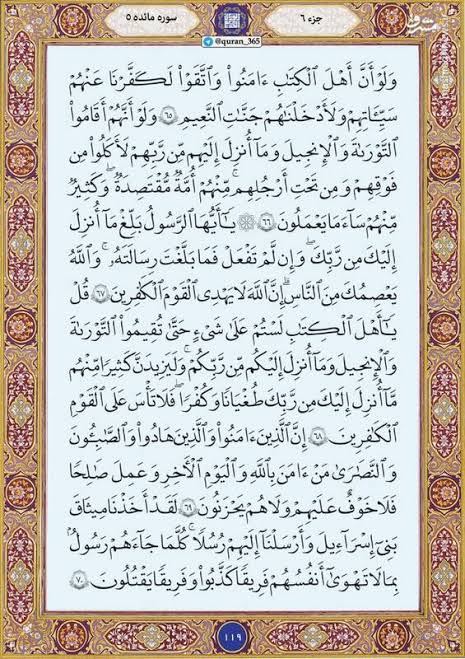 جزء ۶
سوره مائده ۵
@quran_365
وَلَوْ أَنَّ أَهْلَ ٱلْكِتَٰبِ ءَامَنُوا۟ وَٱتَّقَوْا۟ لَكَفَّرْنَا عَنْهُمْ
سَيِّـَٔاتِهِمْ وَلَأَدْخَلْنَٰهُمْ جَنَّٰتِ ٱلنَّعِيمِ ۶۵ وَلَوْ أَنَّهُمْ أَقَامُوا۟
ٱلتَّوْرَىٰةَ وَٱلْإِنجِيلَ وَمَآ أُنزِلَ إِلَيْهِم مِّن رَّبِّهِمْ لَأَكَلُوا۟ مِن
فَوْقِهِمْ وَمِن تَحْتِ أَرْجُلِهِم ۚ مِّنْهُمْ أُمَّةٌ مُّقْتَصِدَةٌ ۖ وَكَثِيرٌ
مِّنْهُمْ سَآءَ مَا يَعْمَلُونَ ۶۶ ۞ يَٰٓأَيُّهَا ٱلرَّسُولُ بَلِّغْ مَآ أُنزِلَ
إِلَيْكَ مِن رَّبِّكَ ۖ وَإِن لَّمْ تَفْعَلْ فَمَا بَلَّغْتَ رِسَالَتَهُۥ ۚ وَٱللَّهُ
يَعْصِمُكَ مِنَ ٱلنَّاسِ ۗ إِنَّ ٱللَّهَ لَا يَهْدِى ٱلْقَوْمَ ٱلْكَٰفِرِينَ ۶۷ قُلْ
يَٰٓأَهْلَ ٱلْكِتَٰبِ لَسْتُمْ عَلَىٰ شَىْءٍ حَتَّىٰ تُقِيمُوا۟ ٱلتَّوْرَىٰةَ
وَٱلْإِنجِيلَ وَمَآ أُنزِلَ إِلَيْكُم مِّن رَّبِّكُمْ ۗ وَلَيَزِيدَنَّ كَثِيرًا مِّنْهُم
مَّآ أُنزِلَ إِلَيْكَ مِن رَّبِّكَ طُغْيَٰنًا وَكُفْرًا ۖ فَلَا تَأْسَ عَلَى ٱلْقَوْمِ
ٱلْكَٰفِرِينَ ۶۸ إِنَّ ٱلَّذِينَ ءَامَنُوا۟ وَٱلَّذِينَ هَادُوا۟ وَٱلصَّٰبِـُٔونَ
وَٱلنَّصَٰرَىٰ مَنْ ءَامَنَ بِٱللَّهِ وَٱلْيَوْمِ ٱلْءَاخِرِ وَعَمِلَ صَٰلِحًا
فَلَا خَوْفٌ عَلَيْهِمْ وَلَا هُمْ يَحْزَنُونَ ۶۹ لَقَدْ أَخَذْنَا مِيثَٰقَ
بَنِىٓ إِسْرَٰٓءِيلَ وَأَرْسَلْنَآ إِلَيْهِمْ رُسُلًا ۖ كُلَّمَا جَآءَهُمْ رَسُولٌۢ
بِمَا لَا تَهْوَىٰٓ أَنفُسُهُمْ فَرِيقًا كَذَّبُوا۟ وَفَرِيقًا يَقْتُلُونَ ۷۰
۱۱۹